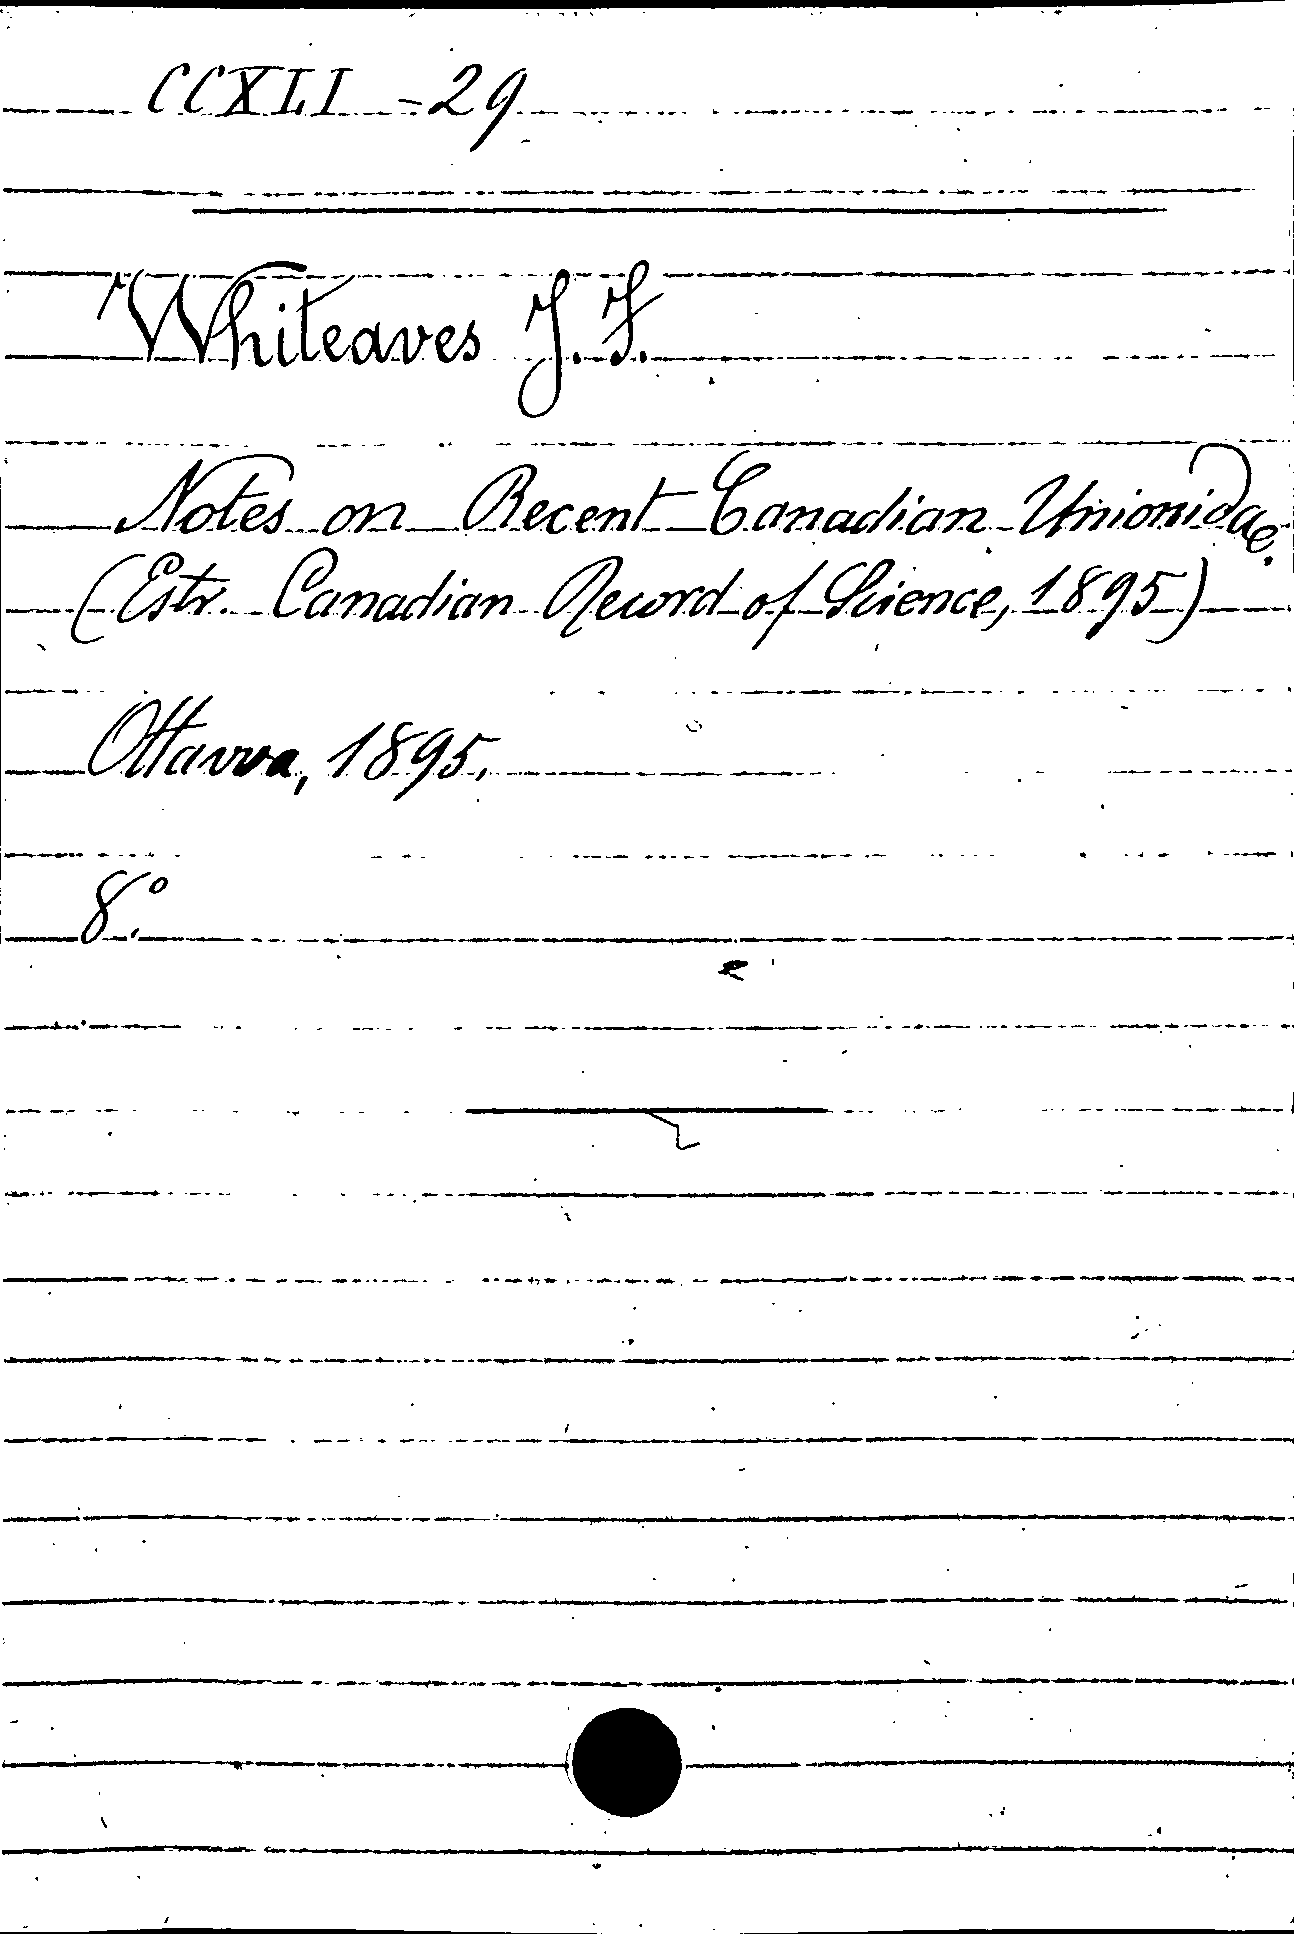 CCXLI - 29
Whiteaves J. F.
Notes on Recent Canadian Unionidae.
(Estr. Canadian Record of Science, 1895)
Ottawa, 1895.
8.°